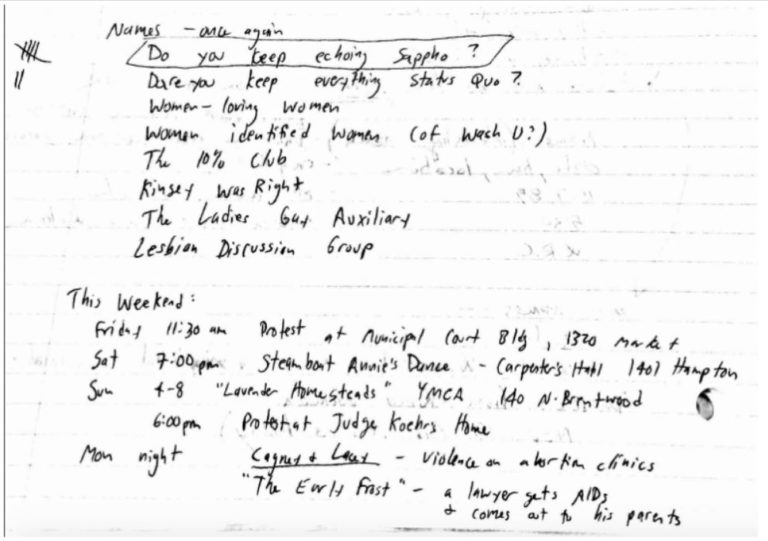 Names - once again
Do you keep echoing Sappho?
Dare you keep everything Status Quo?
Women-loving women
Women identified women (of Wash U?)
The 10% Club
Kinsey was Right
The Ladies Gay Auxiliary
Lesbian Discussion Group
This Weekend:
Friday 11:30 am Protest at Municipal Court Bldg, 1320 Market
Sat 7:00pm Steamboat Annie's Dance - Carpenter's Hall 1401 Hampton
Sun 4-8 "Lavender Homesteads" YMCA 140 N. Brentwood
6:00pm Protest at Judge Koehrs Home
Mon night Cagney & Lacey - violence on abortion clinics
"The Early Frost" - a lawyer gets AIDs
& comes out to his parents